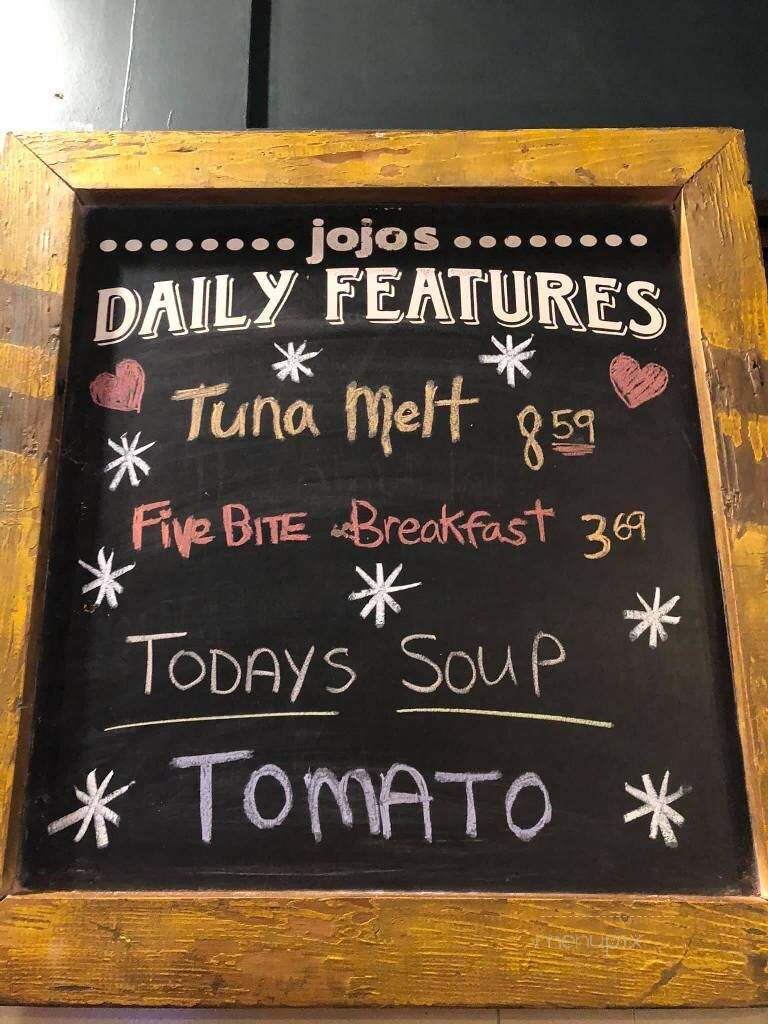 jojos
DAILY FEATURES
Tuna Melt 8 59
Five BITE Breakfast 3 69
TODAYS SOUP
TOMATO
menupix